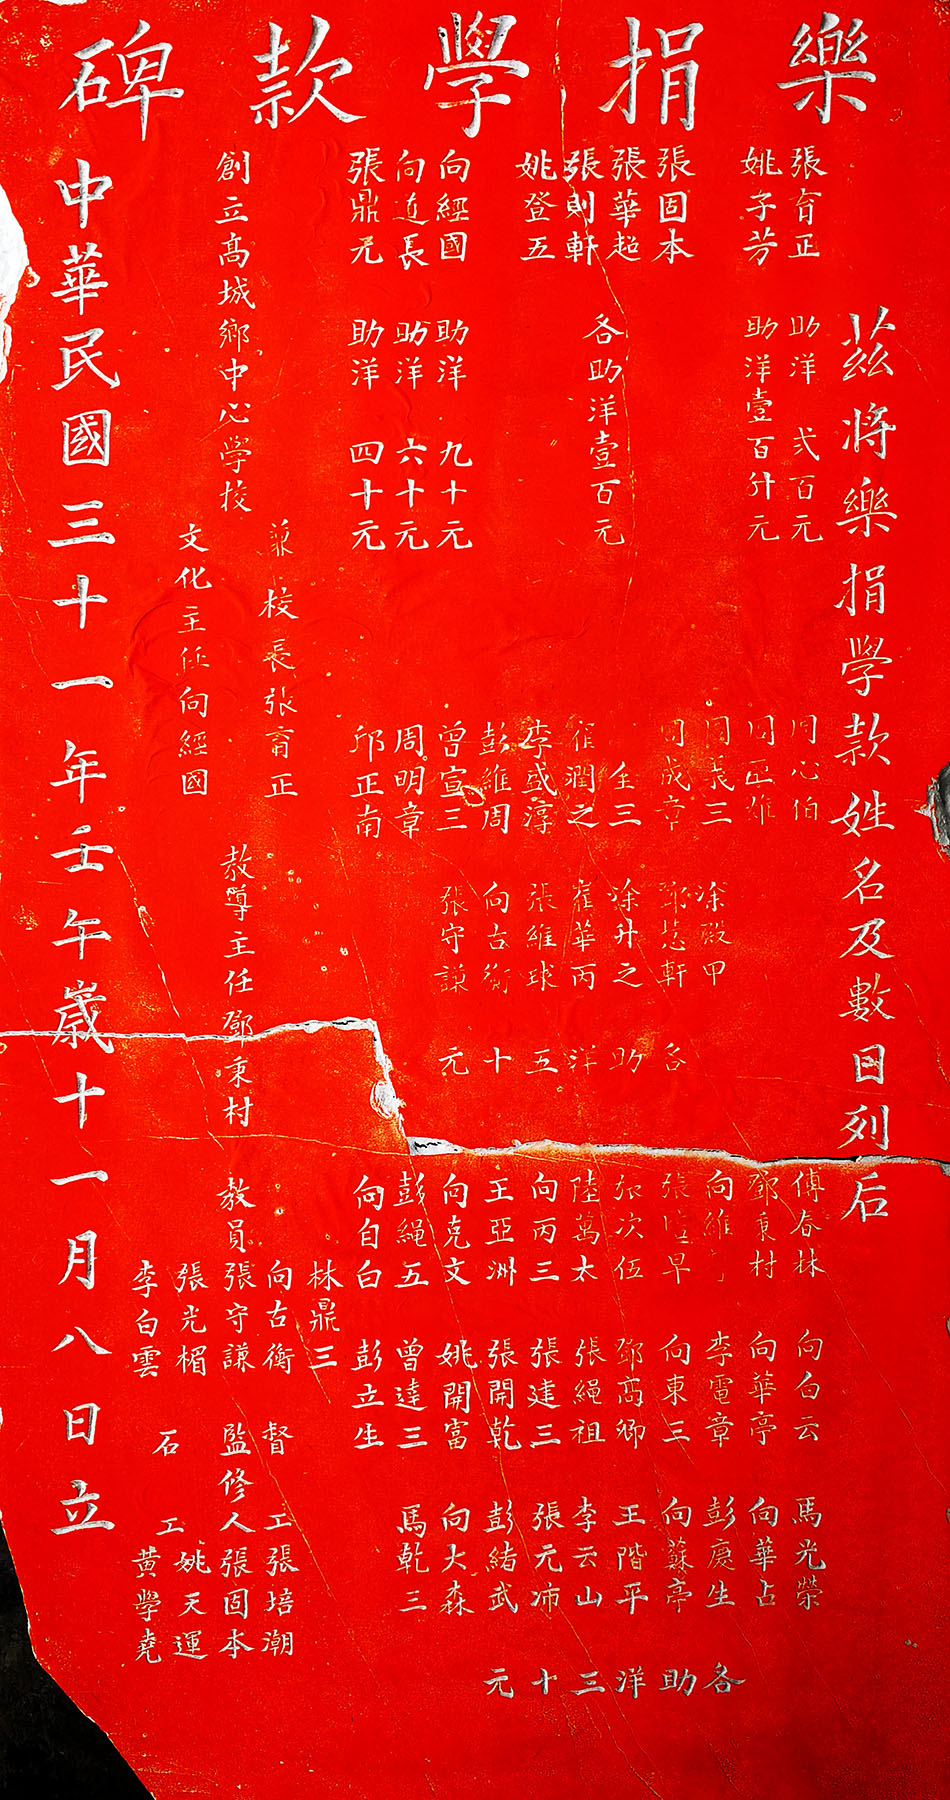 樂捐學款碑
茲將樂捐學款姓名及數目列后
張育正 助洋 弍百元
姚子芳 助洋壹百廾元
張固本
張華超
張則軒
姚登五
各助洋壹百元
向經國 助洋 九十元
向近長 助洋 六十元
張鼎元 助洋 四十元
心伯
正雄
三 涂殿甲
成章 軒
全三 涂升之
崔潤之 崔華丙
李盛淳 張維球
彭維周 向古衡
曾宣三 張守謙
周明章
邱正南
各助洋五十元
傅春林 向白云 馬光榮
鄧秉村 向華亭 向華占
向維 李電章 彭慶生
張 早 向東三 向蘇亭
張次伍 鄧高卿 王階平
陸萬太 張繩祖 李云山
向丙三 張建三 張元沛
王亞洲 張開乾 彭緒武
向克文 姚開富 向大森
彭繩五 曾達三 馬乾三
向自白 彭立生
各助洋三十元
創立高城鄉中心學校
兼校長張育正
文化主任向經國
教導主任鄧秉村
教員
林鼎三
向古衡
張守謙
張光楣
李白雲
督工張培潮
監修人張固本
石工姚天運
黃學堯
中華民國三十一年壬午歲十一月八日立